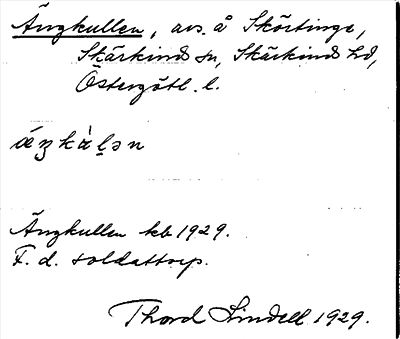 Ängkullen, avs. å Skörtinge,
Skärkinds sn, Skärkinds hd,
Östergötl. l.
äŋkàlən
Ängkullen kb 1929.
F. d. soldattorp.
Thord Lindell 1929.